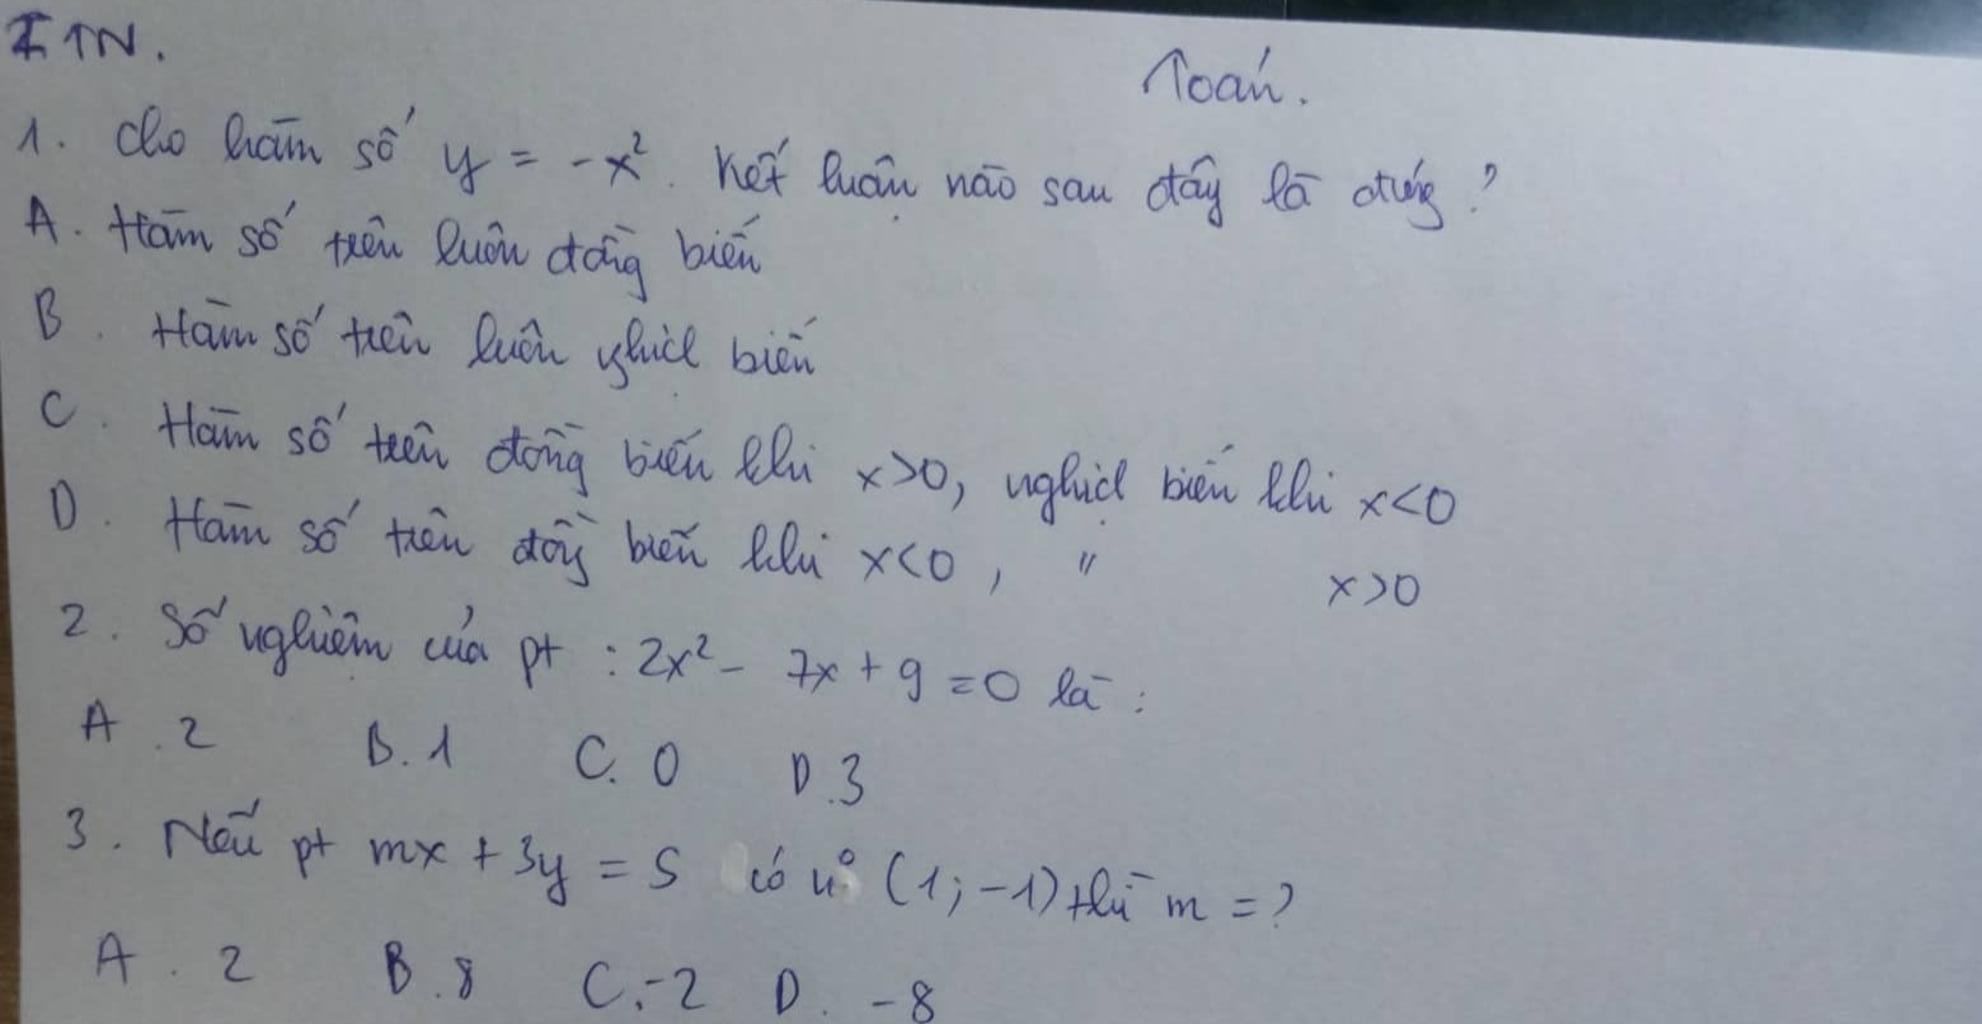 I TN.
Toán.
1. Cho hàm số y = -x². Kết luận nào sau đây là đúng?
A. Hàm số trên luôn đồng biến
B. Hàm số trên luôn nghịch biến
C. Hàm số trên đồng biến khi x>0, nghịch biến khi x<0
D. Hàm số trên đồng biến khi x<0, " x>0
2. Số nghiệm của pt : 2x² - 7x + 9 = 0 là :
A. 2 B. 1 C. 0 D. 3
3. Nếu pt mx + 3y = 5 có n° (1; -1) thì m = ?
A. 2 B. 8 C. -2 D. -8